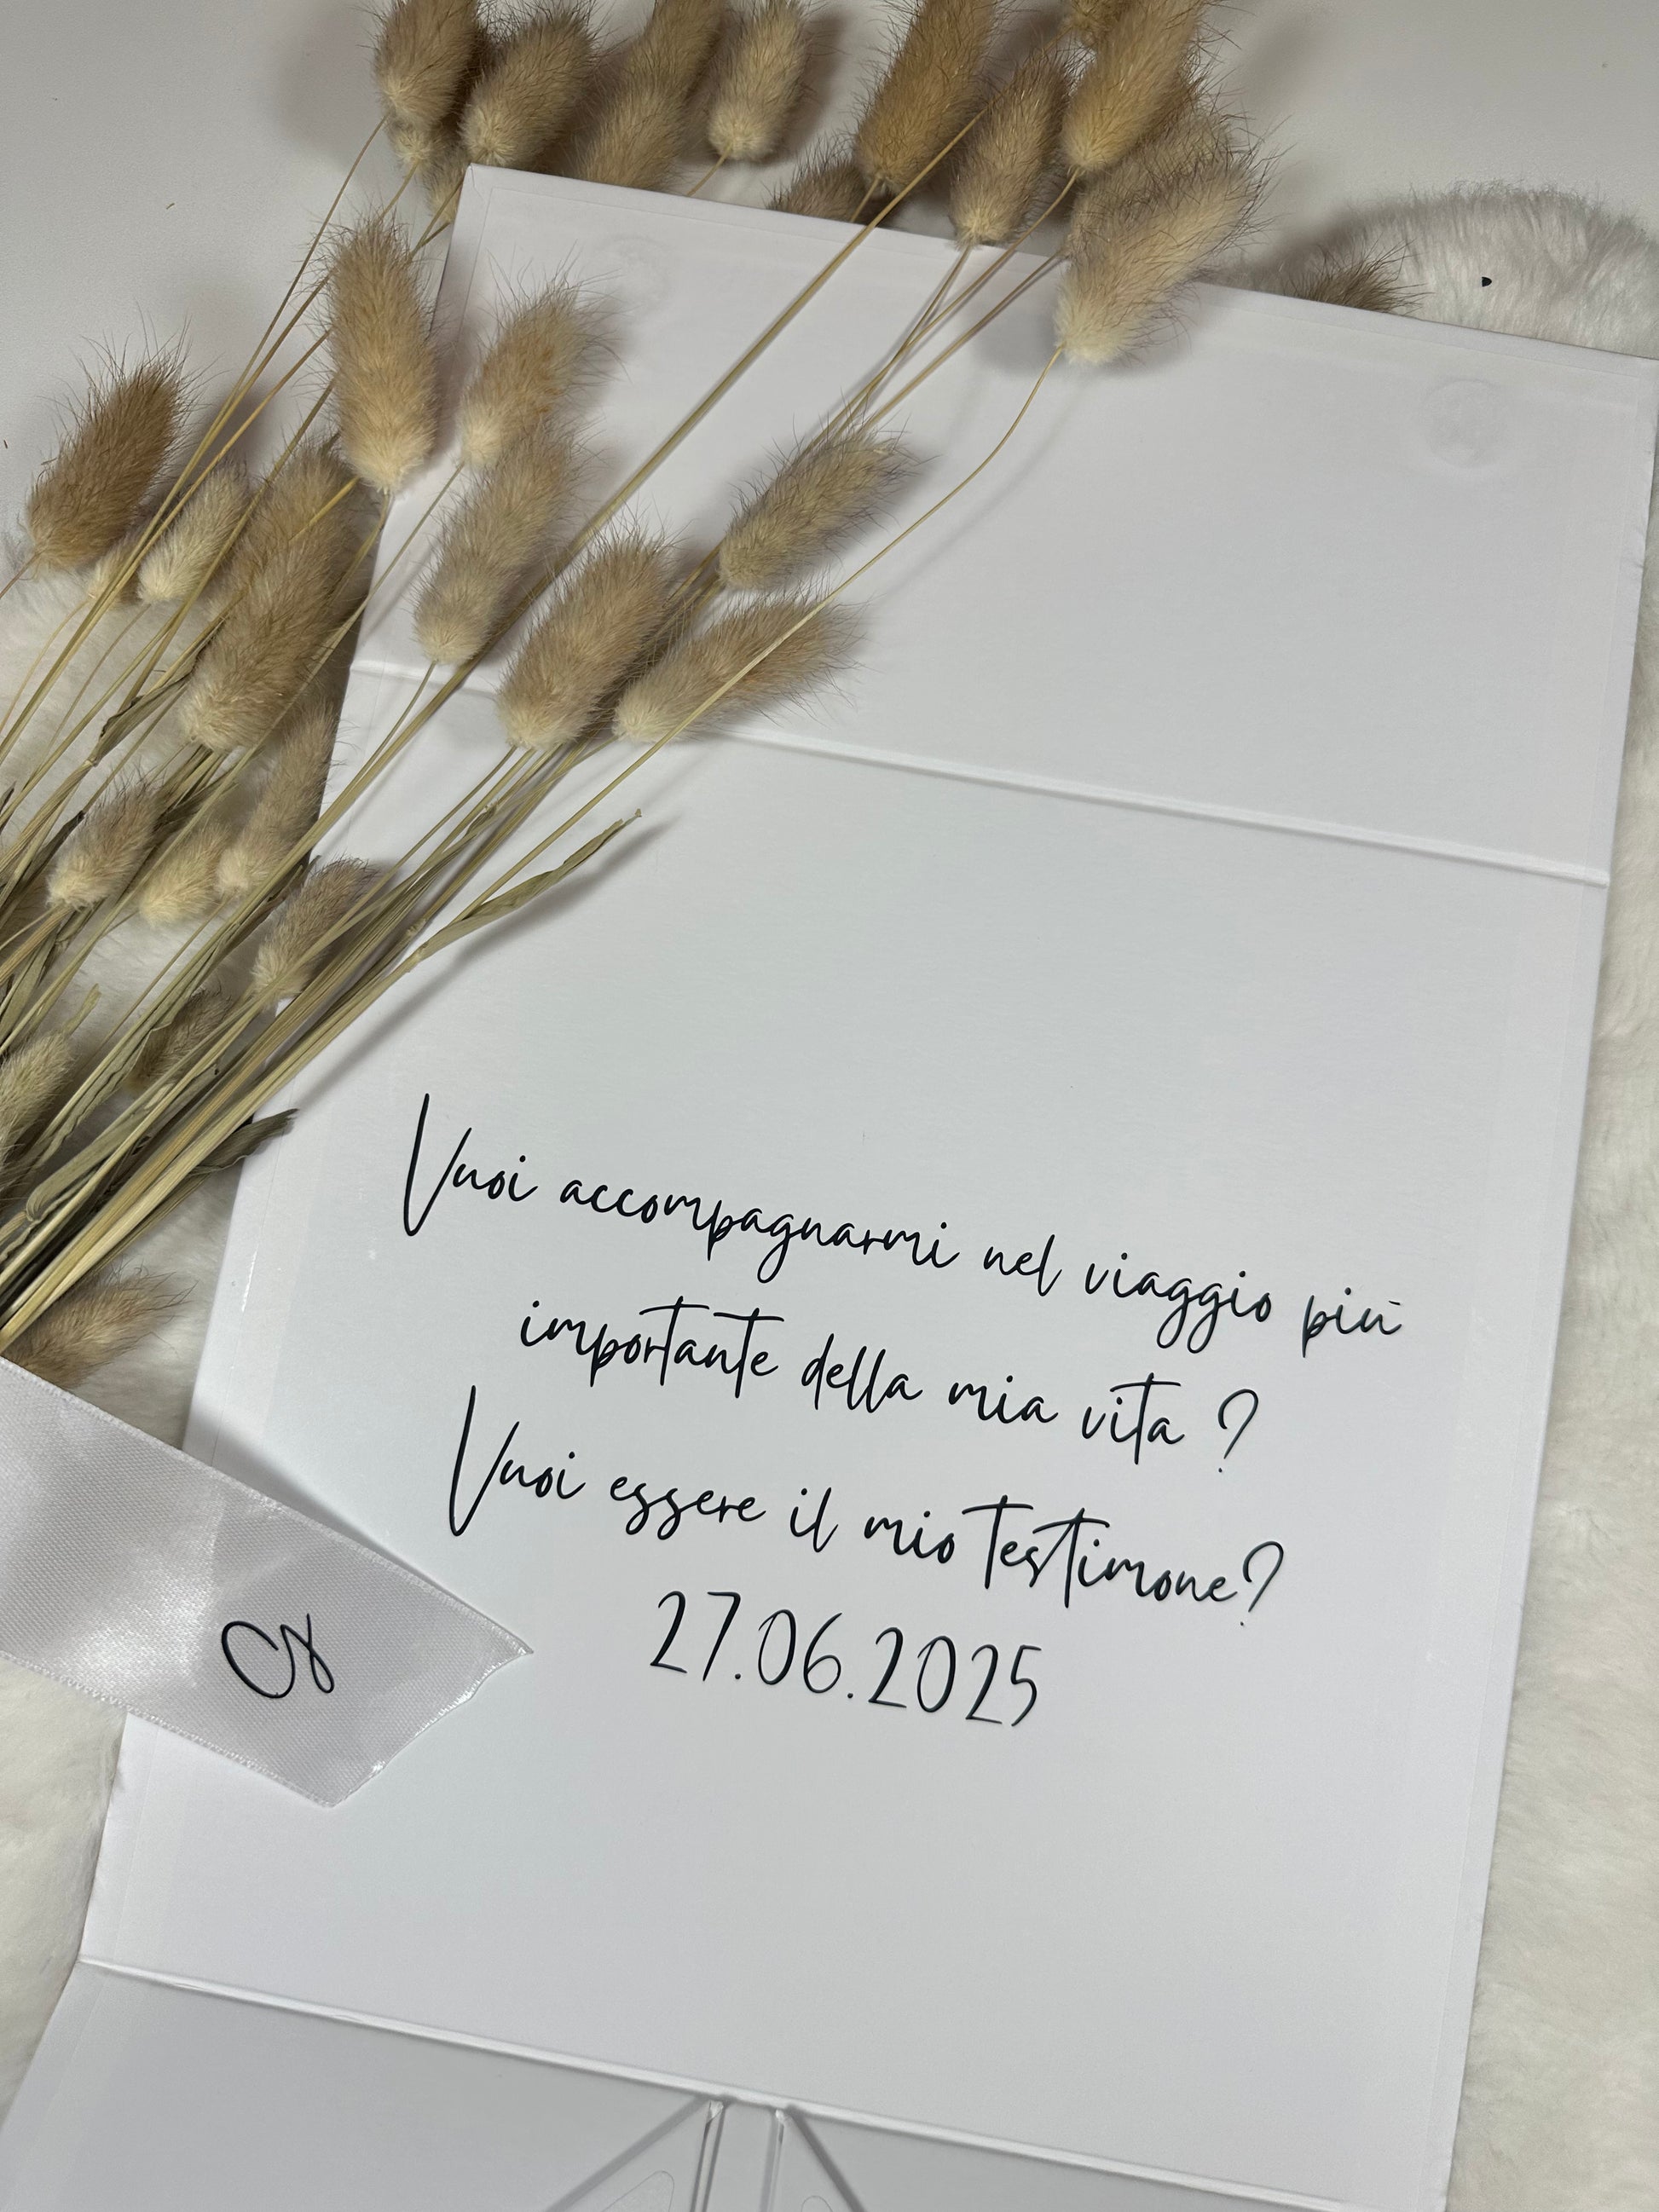 Vuoi accompagnarmi nel viaggio più
importante della mia vita ?
Vuoi essere il mio testimone?
27.06.2025